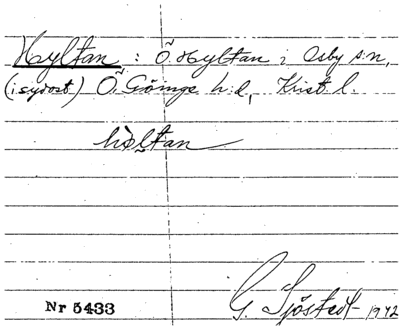 Hyltan : Ö. Hyltan i Osby sn,
(i sydost) Ö. Göinge hd, Krist l.
hìltan
G. Sjöstedt 1942
Nr 5433